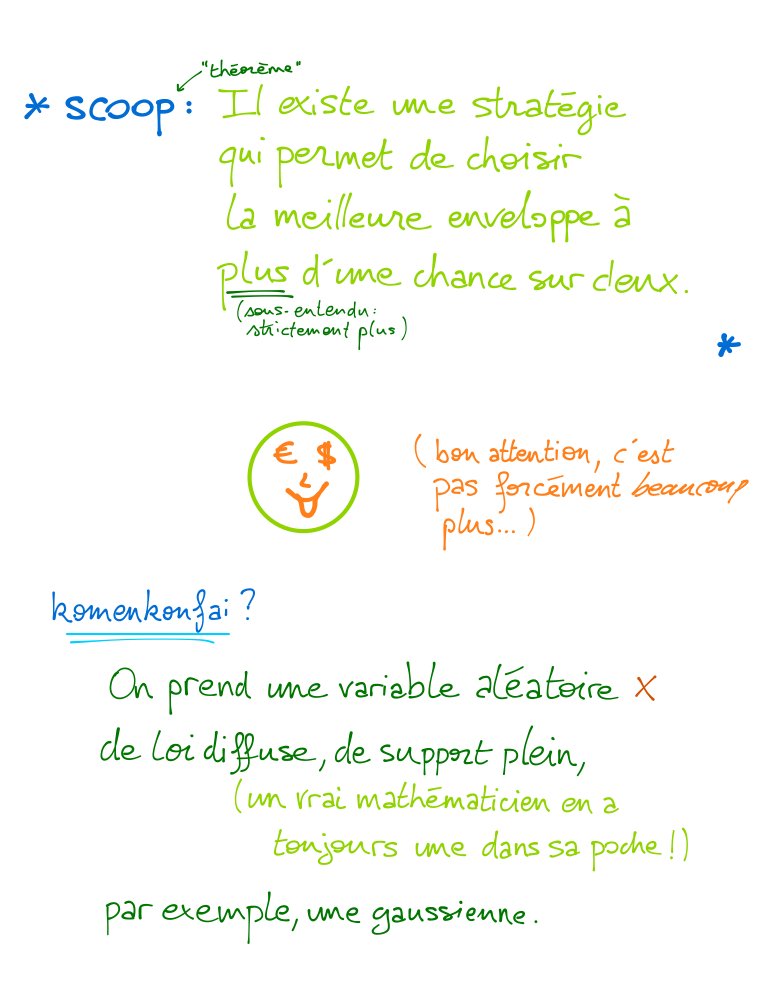 "théorème"
* scoop : Il existe une stratégie
qui permet de choisir
la meilleure enveloppe à
plus d'une chance sur deux.
(sous-entendu :
strictement plus)
*
€ $
(bon attention, c'est
pas forcément beaucoup
plus...)
komenkonfai ?
On prend une variable aléatoire X
de loi diffuse, de support plein,
(un vrai mathématicien en a
toujours une dans sa poche !)
par exemple, une gaussienne.